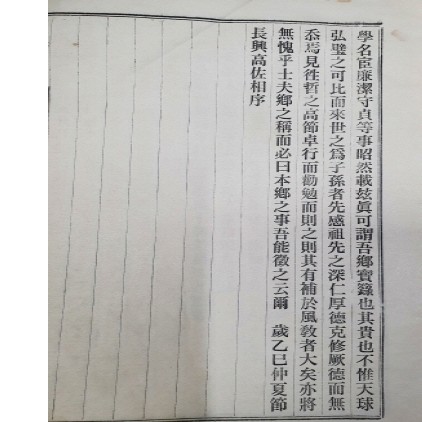 學名宦廉潔守貞等事昭然載玆眞可謂吾鄕寶籙也其貴也不惟天球
弘璧之可比而來世之爲子孫者先感祖先之深仁厚德克修厥德而無
忝焉見徃哲之高節卓行而勸勉而則之則其有補於風敎者大矣亦將
無愧乎士夫鄕之稱而必曰本鄕之事吾能徵之云爾 歲乙巳仲夏節
長興高佐相序